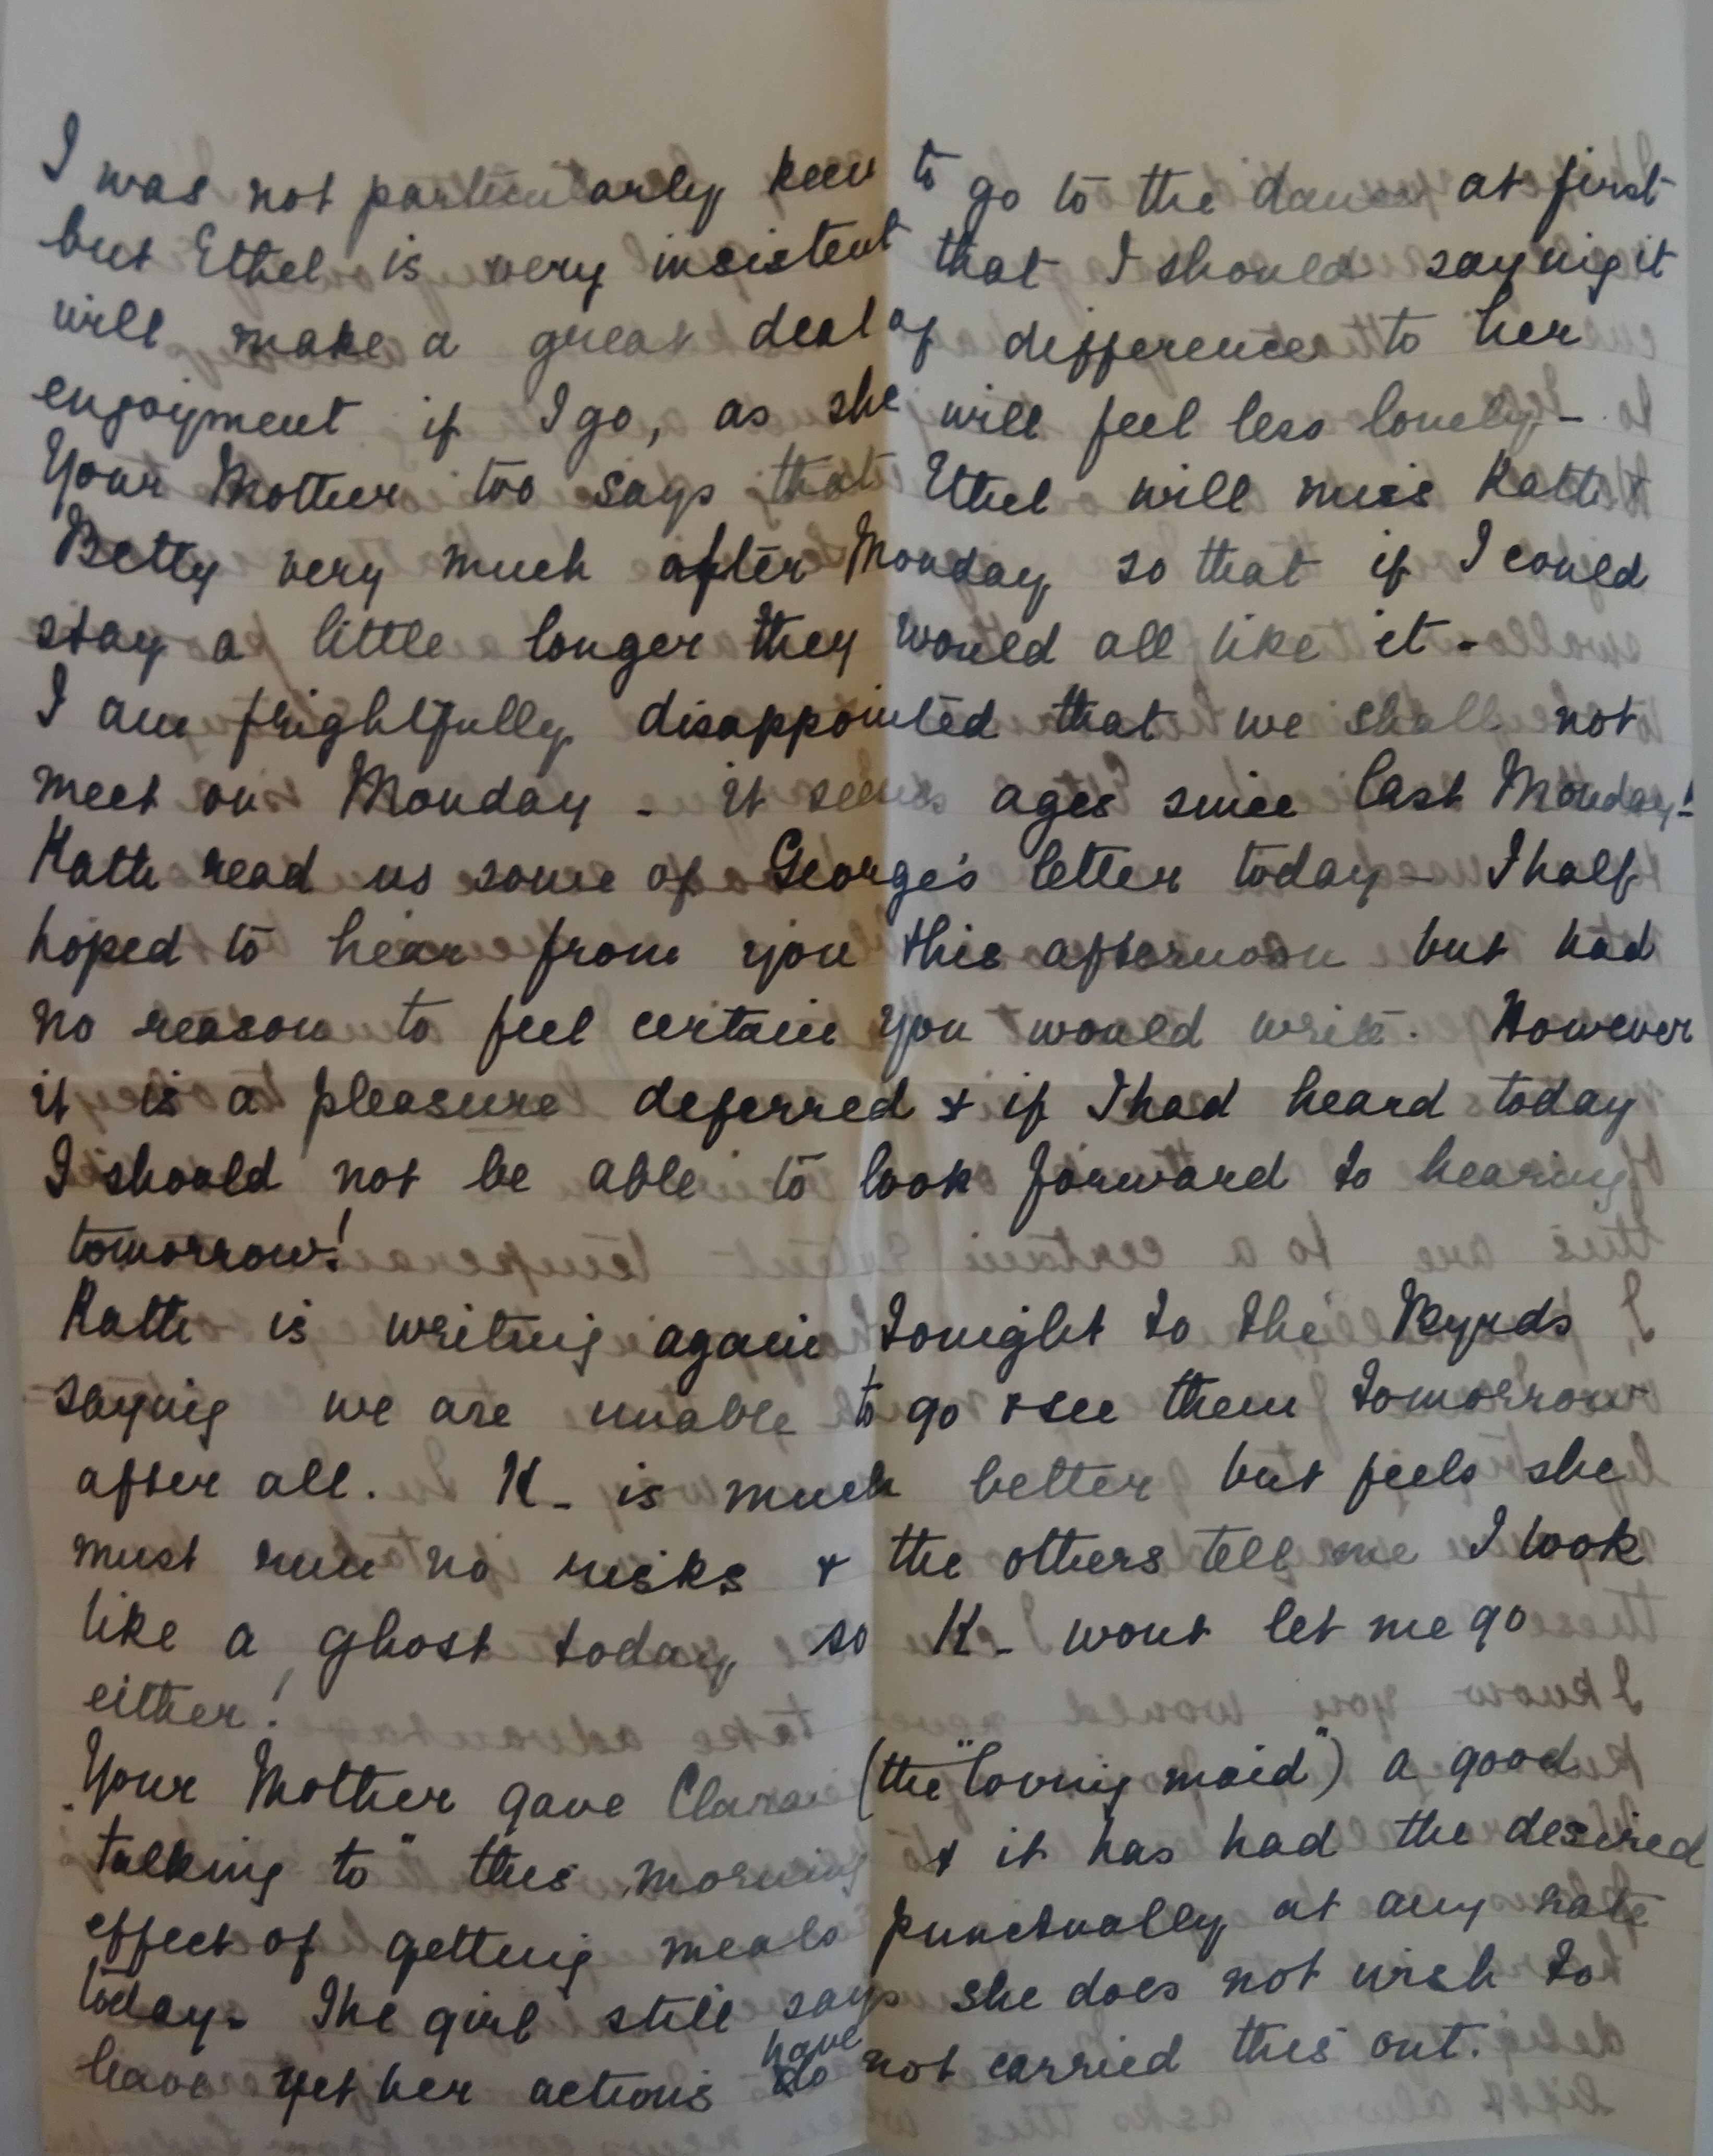 I was not particularly keen to go to the dance at first
but Ethel is very insistent that I should saying it
will make a great deal of difference to her
enjoyment if I go, as she will feel less lonely -
Your Mother too says that Ethel will miss Kath &
Betty very much after Monday so that if I could
stay a little longer they would all like it -
I am frightfully disappointed that we shall not
meet on Monday - it seems ages since last Monday!
Kath read us some of George's letter today - I half
hoped to hear from you this afternoon but had
no reason to feel certain you would write. However
it is a pleasure deferred & if I had heard today
I should not be able to look forward to hearing
tomorrow!
Kath is writing again tonight to the
saying we are unable to go & see them tomorrow
after all. K - is much better but feels she
must run no risks & the others tell me I look
like a ghost today so K - wont let me go
either!
Your Mother gave (the "loving maid") a good
talking to" this morning & it has had the desired
effect of getting meals punctually at any rate
today. The girl still says she does not wish to
leave yet her actions have not carried this out.